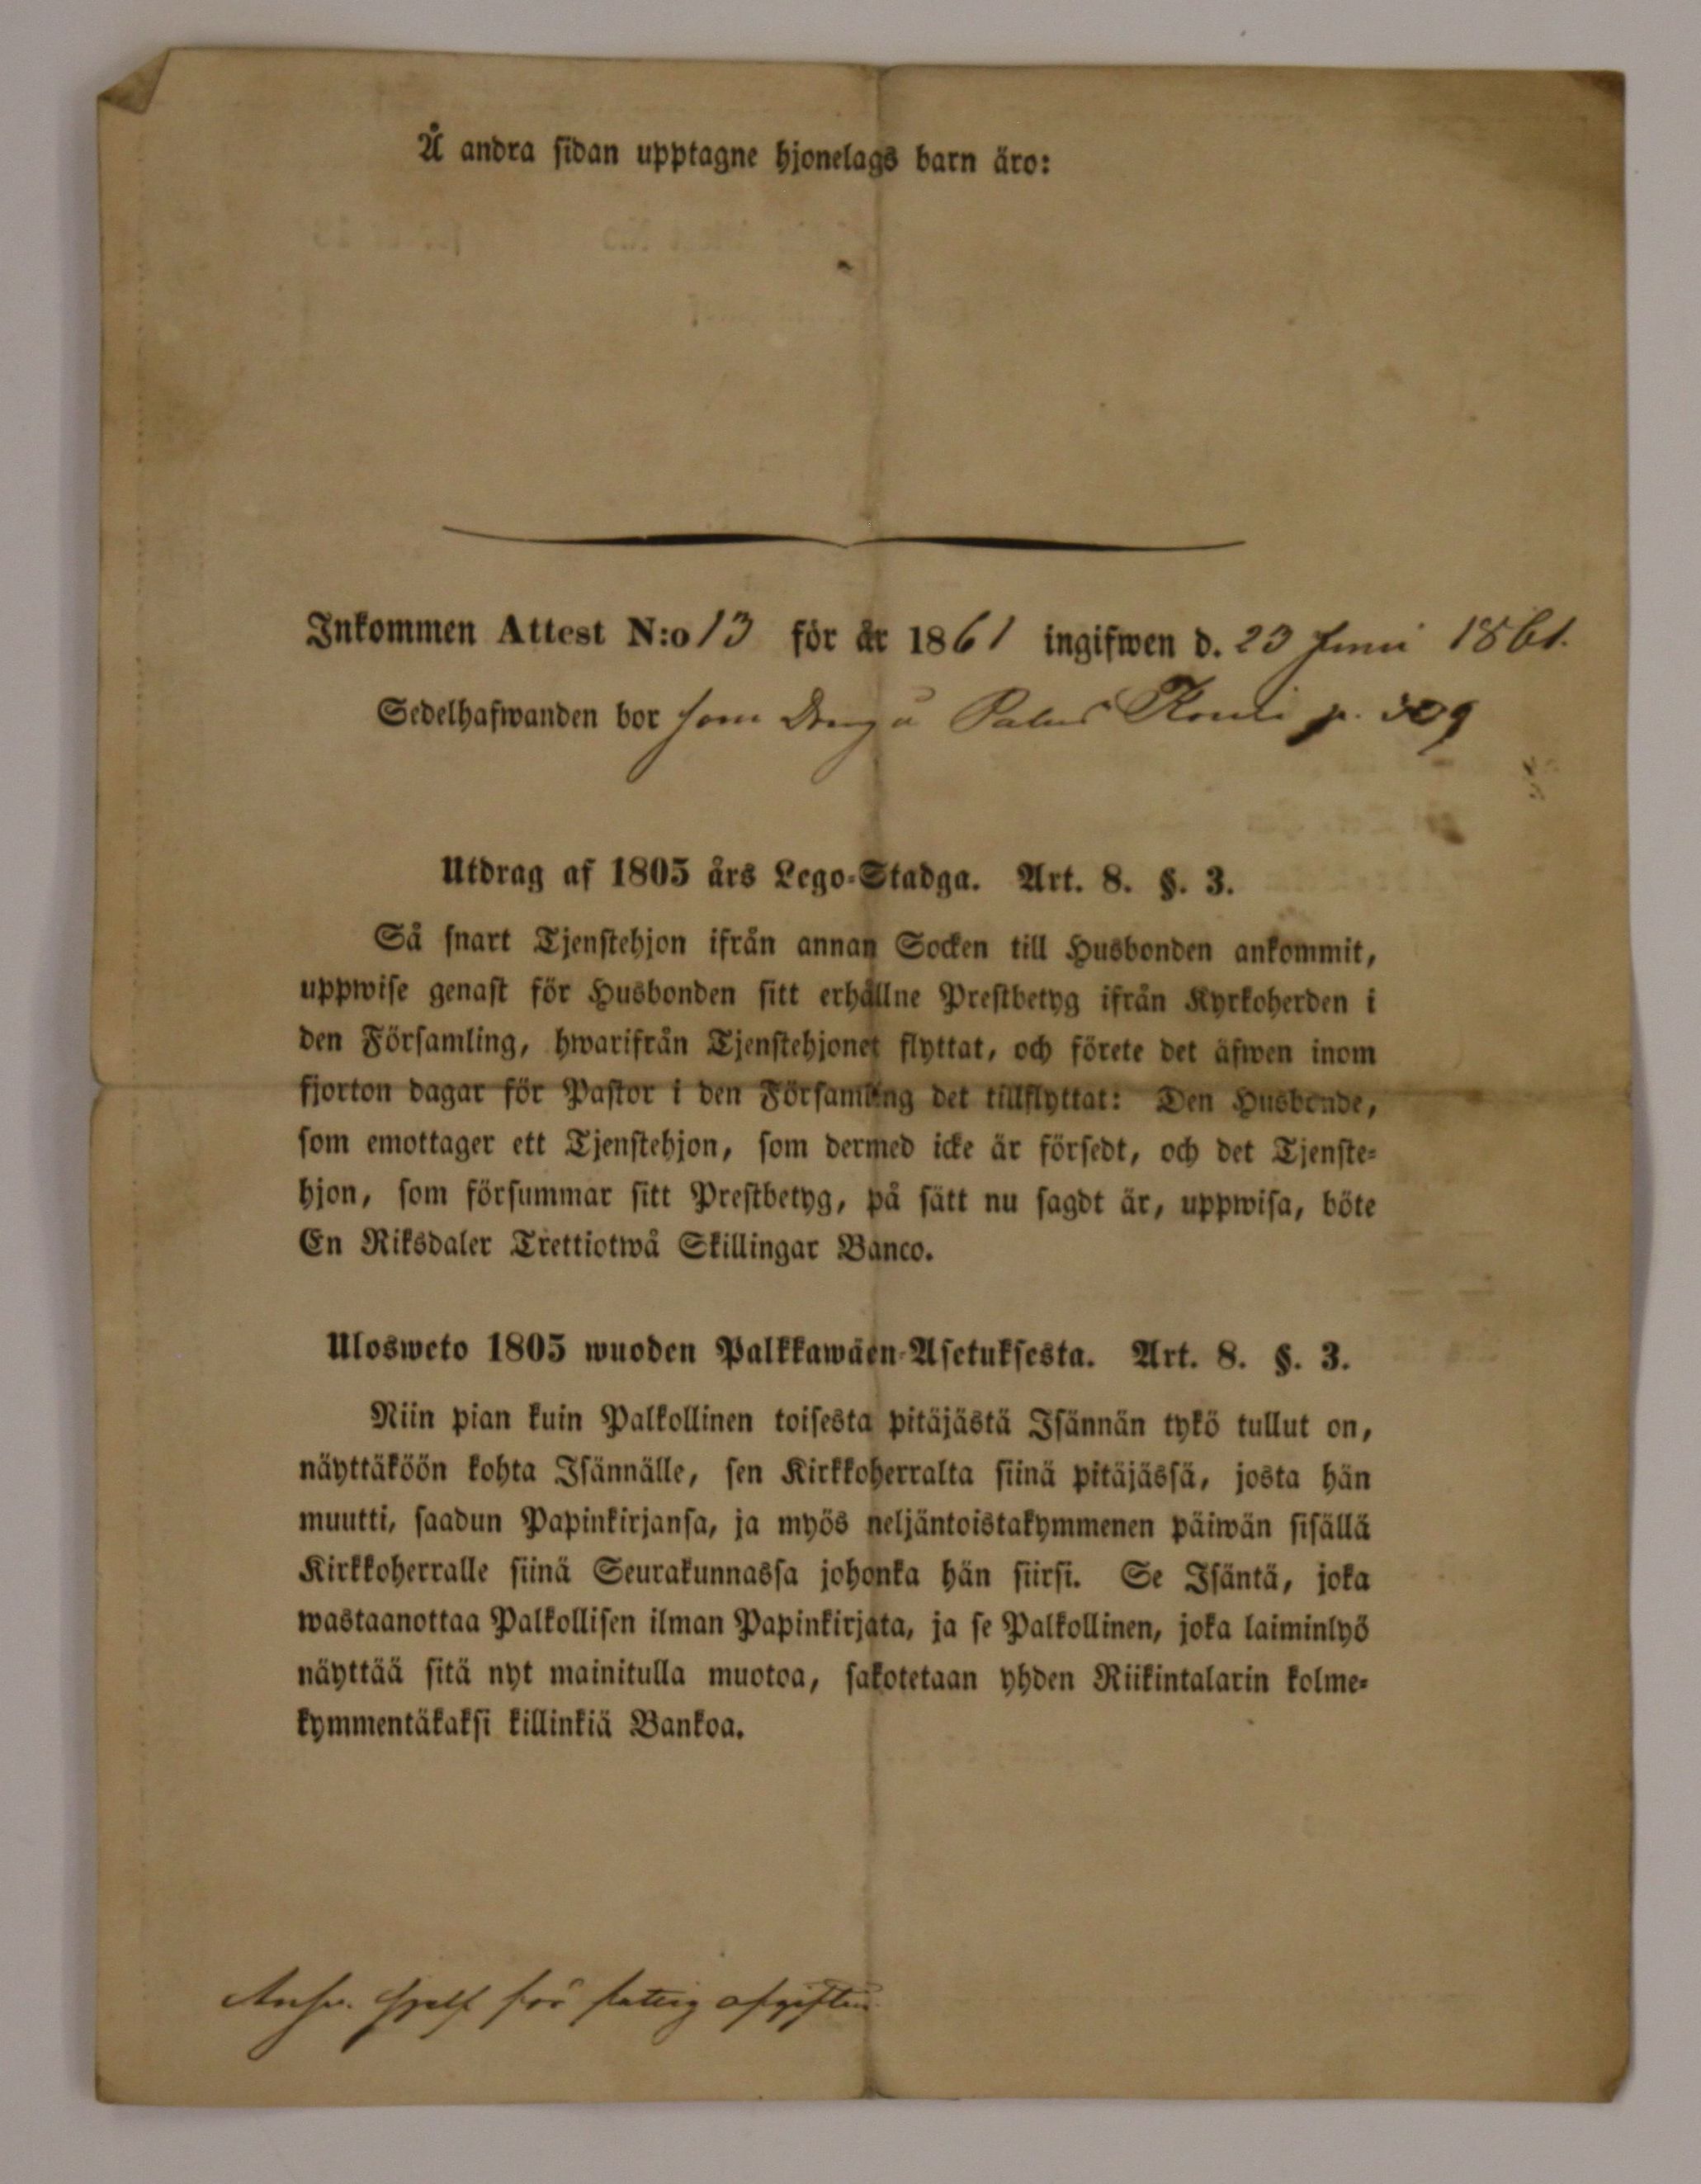 Å andra sidan upptagne hjonelags barn äro:
Inkommen Attest N:o 13 för år 1861 ingifwen d. 23 Juni 1861.
Sedelhafwanden bor som Dreng
Utdrag af 1805 års Lego-Stadga. Art. 8. §. 3.
Så snart Tjenstehjon ifrån annan Socken till Husbonden ankommit,
uppwise genast för Husbonden sitt erhållne Prestbetyg ifrån Kyrkoherden i
den Församling, hwarifrån Tjenstehjonet flyttat, och förete det äfwen inom
fjorton dagar för Pastor i den Församling det tillflyttat: Den Husbonde,
som emottager ett Tjenstehjon, som dermed icke är försedt, och det Tjenste-
hjon, som försummar sitt Prestbetyg, på sätt nu sagdt är, uppwisa, böte
En Riksdaler Trettiotwå Skillingar Banco.
Ulosweto 1805 wuoden Palkkawäen-Asetuksesta. Art. 8. §. 3.
Niin pian kuin Palkollinen toisesta pitäjästä Isännän tykö tullut on,
näyttäköön kohta Isännälle, sen Kirkkoherralta siinä pitäjässä, josta hän
muutti, saadun Papinkirjansa, ja myös neljäntoistakymmenen päiwän sisällä
Kirkkoherralle siinä Seurakunnassa johonka hän siirsi. Se Isäntä, joka
wastaanottaa Palkollisen ilman Papinkirjata, ja se Palkollinen, joka laiminlyö
näyttää sitä nyt mainitulla muotoa, sakotetaan yhden Riikintalarin kolme-
kymmentäkaksi killinkiä Bankoa.
Answ. sjelf för fattig afgiften